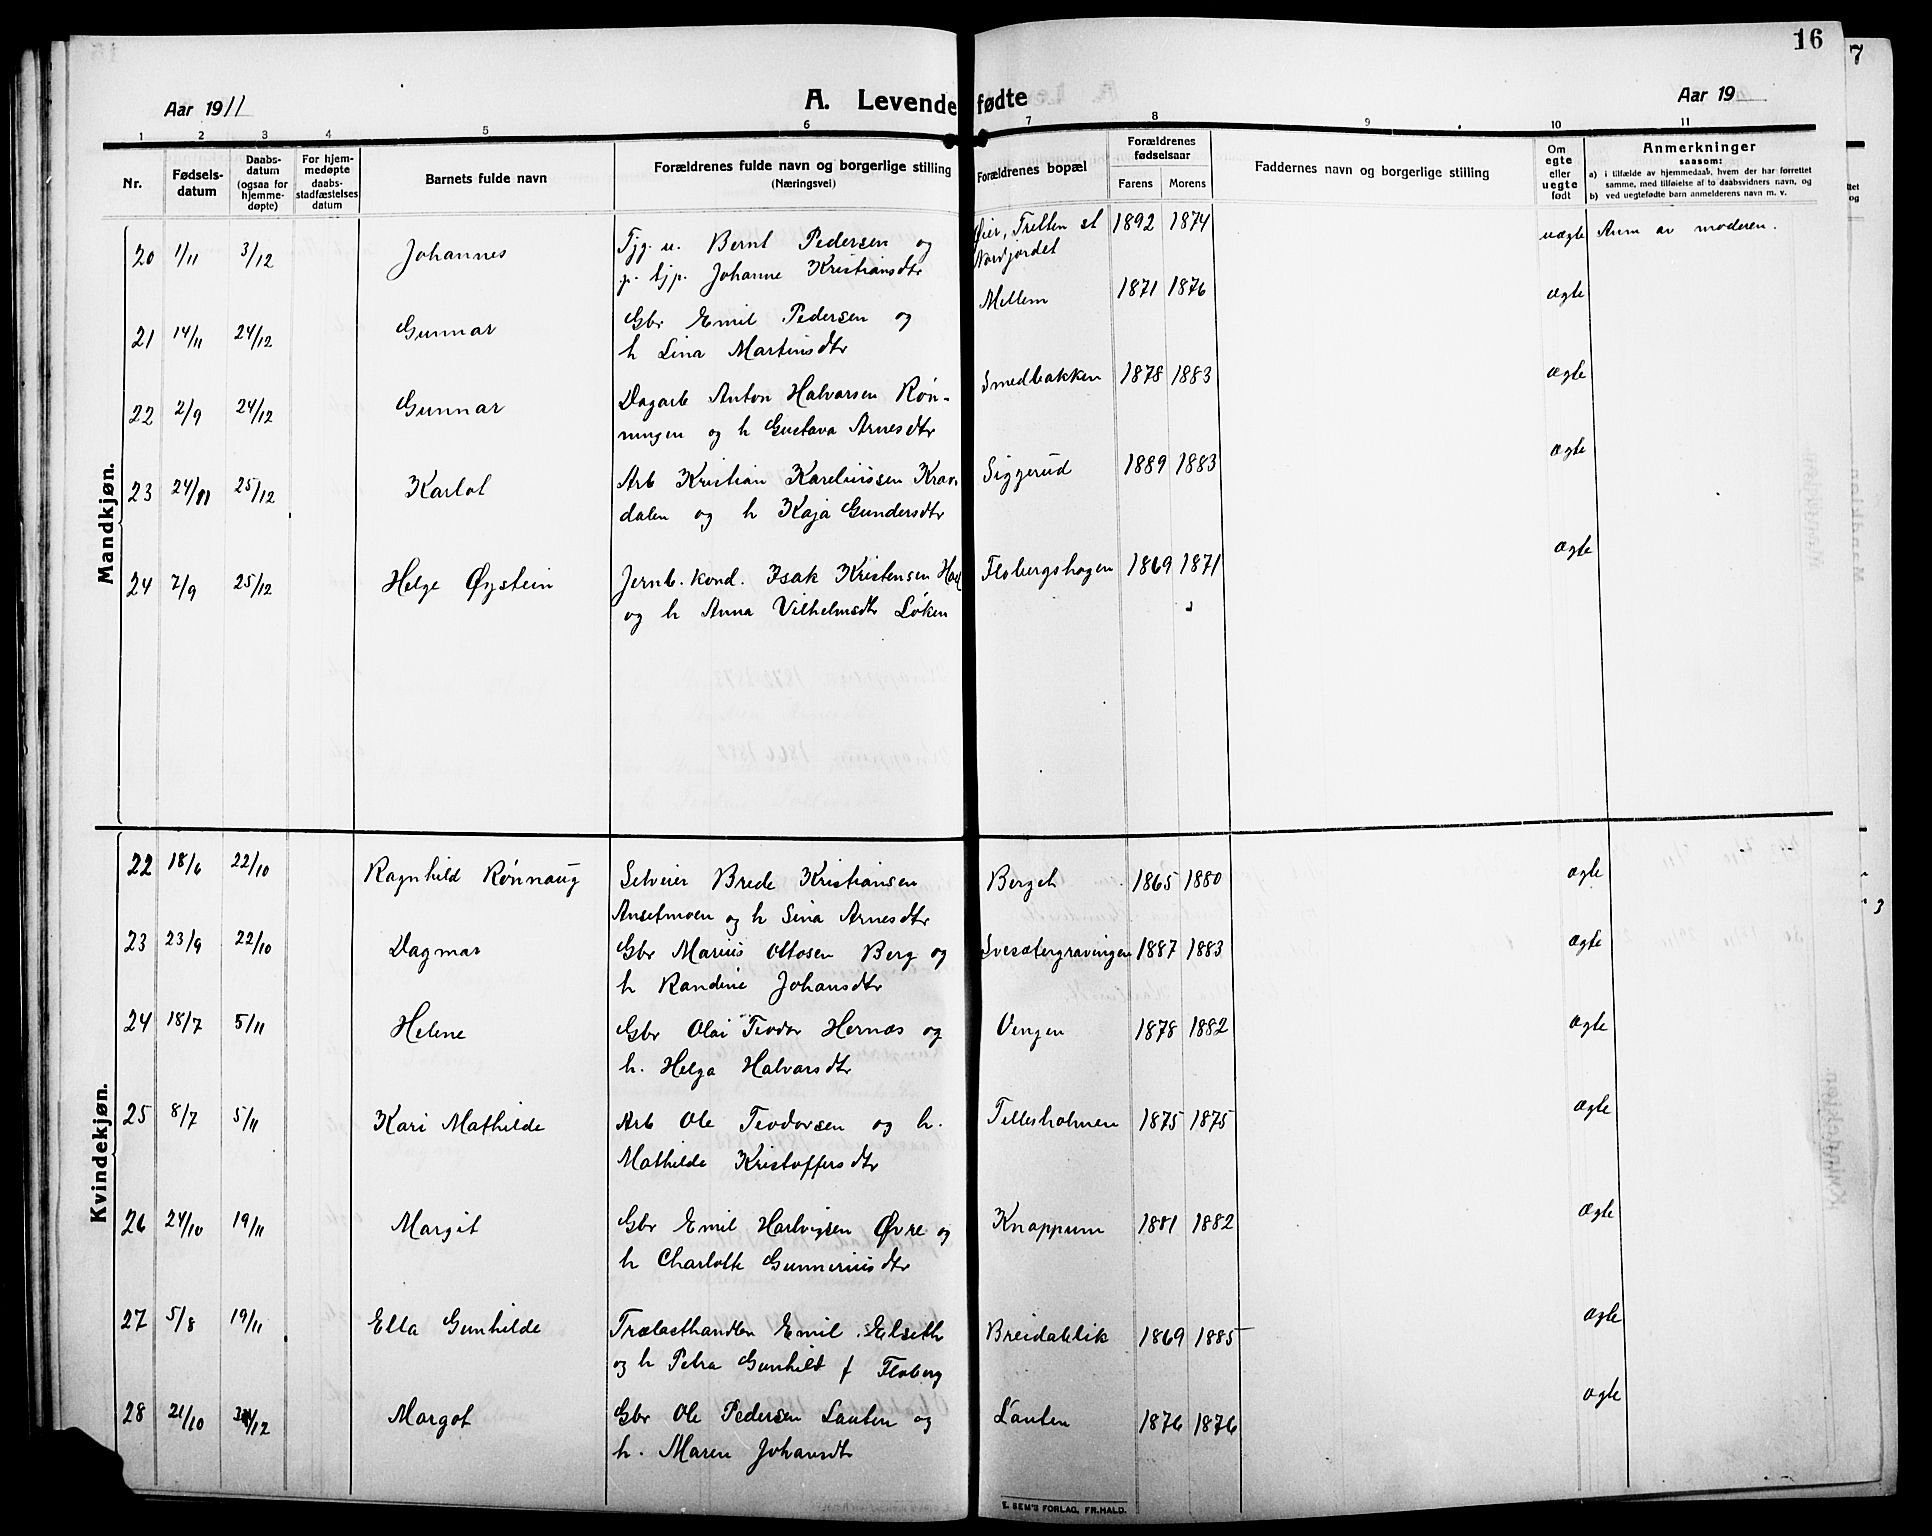 16
7
Aar 1911
A. Levendefødte
Aar 19
1 2 3 4 5 6 7 8 9 10 11
Nr.
Fødsels-
datum
Daabs-
datum
(ogsaa for
hjemme-
døpte)
For hjem-
medøpte
daabs-
stadfæstelses
datum
Barnets fulde navn
Forældrenes fulde navn og borgerlige stilling
(Næringsvei)
Forældrenes bopæl
Forældrenes
fødselsaar
Farens Morens
Faddernes navn og borgerlige stilling
Om
egte
eller
uegte
født
Anmerkninger
saasom:
a) i tilfælde av hjemmedaab, hvem der har forrettet
samme, med tilføielse af to daabsvidners navn, og
b) ved uegtefødte barn anmelderens navn m. v.
Mandkjøn.
20 1/11 3/12 Johannes Tjg. u. Bernt Pedersen og Øier, Tretten st 1892 1874 uægte Anm av moderen.
p. tjp. Johanne Kristiansdtr Norfjordet
21 14/11 24/12 Gunnar Gbr Emil Pedersen og Mellem 1871 1876 ægte
h Lina Martinsdtr
22 2/9 24/12 Gunnar Dagarb Anton Halvorsen Røn- Smedbakken 1878 1883 ægte
ningen og h Gustava Arnesdtr
23 24/11 25/12 Karlot Arb Kristian Kareliussen Krav- Siggerud 1889 1883 ægte
dalen og h Kaja Gundersdtr
24 7/9 25/12 Helge Øystein Jernb. kond. Isak Kristensen Flobergshagen 1869 1871 ægte
og h Anna Vilhelmsdtr Løken
Kvindekjøn.
22 18/6 22/10 Ragnhild Rønnaug Selveier Brede Kristiansen Berget 1865 1880 ægte
Ansetmoen og h Lina Arnesdtr
23 23/9 22/10 Dagmar Gbr Marius Ottosen Berg og Svesætergravingen 1887 1883 ægte
h Randine Johansdtr
24 18/7 5/11 Helene Gbr Olai Teodor Hernæs og Vengen 1878 1882 ægte
h. Helga Halvorsdtr
25 8/7 5/11 Kari Mathilde Arb Ole Teodorsen og h. Tillesholmen 1875 1875 ægte
Mathilde Kristoffersdtr
26 24/10 19/11 Margit Gbr Emil Hartvigsen Øvre og Knappum 1881 1882 ægte
h Charlotte Gunneriusdtr
27 5/8 19/11 Ella Gunhilde Trælasthandler Emil Elseth Breidablik 1869 1885 ægte
og h Petra Gunhild f Floberg
28 21/10 /12 Margot Gbr Ole Pedersen Lauten og Lauten 1876 1876 ægte
h. Maren Johansdtr
E. SEM'S FORLAG, FR.HALD.